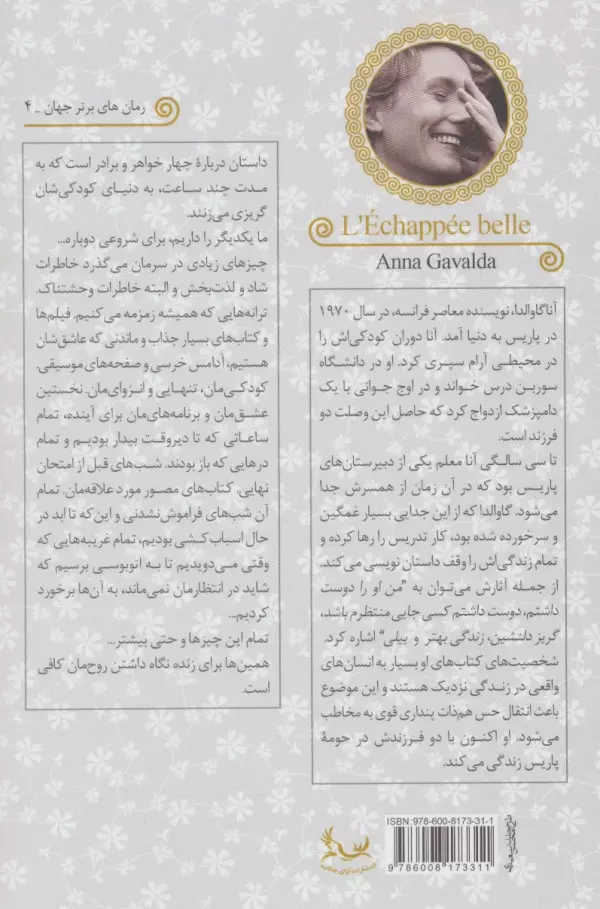 L'Échappée belle
Anna Gavalda
آنا گاوالدا، نویسنده معاصر فرانسه، در سال ۱۹۷۰
در پاریس به دنیا آمد. آنا دوران کودکی‌اش را
در محیطی آرام سپری کرد. او در دانشگاه
سوربن درس خواند و در اوج جوانی با یک
دامپزشک ازدواج کرد که حاصل این وصلت دو
فرزند است.
تا سی سالگی آنا معلم یکی از دبیرستان‌های
پاریس بود که در آن زمان از همسرش جدا
می‌شود. گاوالدا که از این جدایی بسیار غمگین
و سرخورده شده بود، کار تدریس را رها کرده و
تمام زندگی‌اش را وقف داستان نویسی می‌کند.
از جمله آثارش می‌توان به "من او را دوست
داشتم، دوست داشتم کسی جایی منتظرم باشد،
گریز دلنشین، زندگی بهتر و بیلی" اشاره کرد.
شخصیت‌های کتاب‌های او بسیار به انسان‌های
واقعی در زندگی نزدیک هستند و این موضوع
باعث انتقال حس هم‌ذات پنداری قوی به مخاطب
می‌شود. او اکنون با دو فرزندش در حومهٔ
پاریس زندگی می‌کند.
رمان های برتر جهان _ ۴
داستان دربارهٔ چهار خواهر و برادر است که به
مدت چند ساعت، به دنیای کودکی‌شان
گریزی می‌زنند.
ما یکدیگر را داریم، برای شروعی دوباره...
چیزهای زیادی در سرمان می‌گذرد خاطرات
شاد و لذت‌بخش و البته خاطرات وحشتناک.
ترانه‌هایی که همیشه زمزمه می‌کنیم. فیلم‌ها
و کتاب‌های بسیار جذاب و ماندنی که عاشق‌شان
هستیم، آدامس خرسی و صفحه‌های موسیقی.
کودکی‌مان، تنهایی و انزوای‌مان. نخستین
عشق‌مان و برنامه‌های‌مان برای آینده، تمام
ساعاتی که تا دیروقت بیدار بودیم و تمام
درهایی که باز بودند. شب‌های قبل از امتحان
نهایی. کتاب‌های مصور مورد علاقه‌مان. تمام
آن شب‌های فراموش‌نشدنی و این‌که تا ابد در
حال اسباب‌کشی بودیم، تمام غریبه‌هایی که
وقتی می‌دویدیم تا به اتوبوسی برسیم که
شاید در انتظارمان نمی‌ماند، به آن‌ها برخورد
کردیم...
تمام این چیزها و حتی بیشتر...
همین‌ها برای زنده نگاه داشتن روح‌مان کافی
است.
ISBN: 978-600-8173-31-1
9 786008 173311